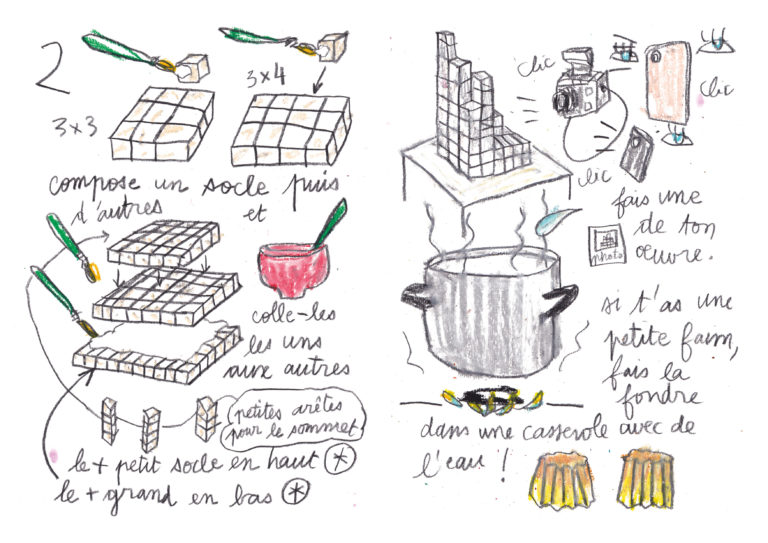 2
3x3
3x4
compose un socle puis
d'autres et
colle-les
les uns
aux autres
petites arêtes
pour le sommet
le + petit socle en haut *
le + grand en bas *
clic
clic
clic
fais une
photo
de ton
œuvre.
si t'as une
petite faim,
fais la
fondre
dans une casserole avec de
l'eau !